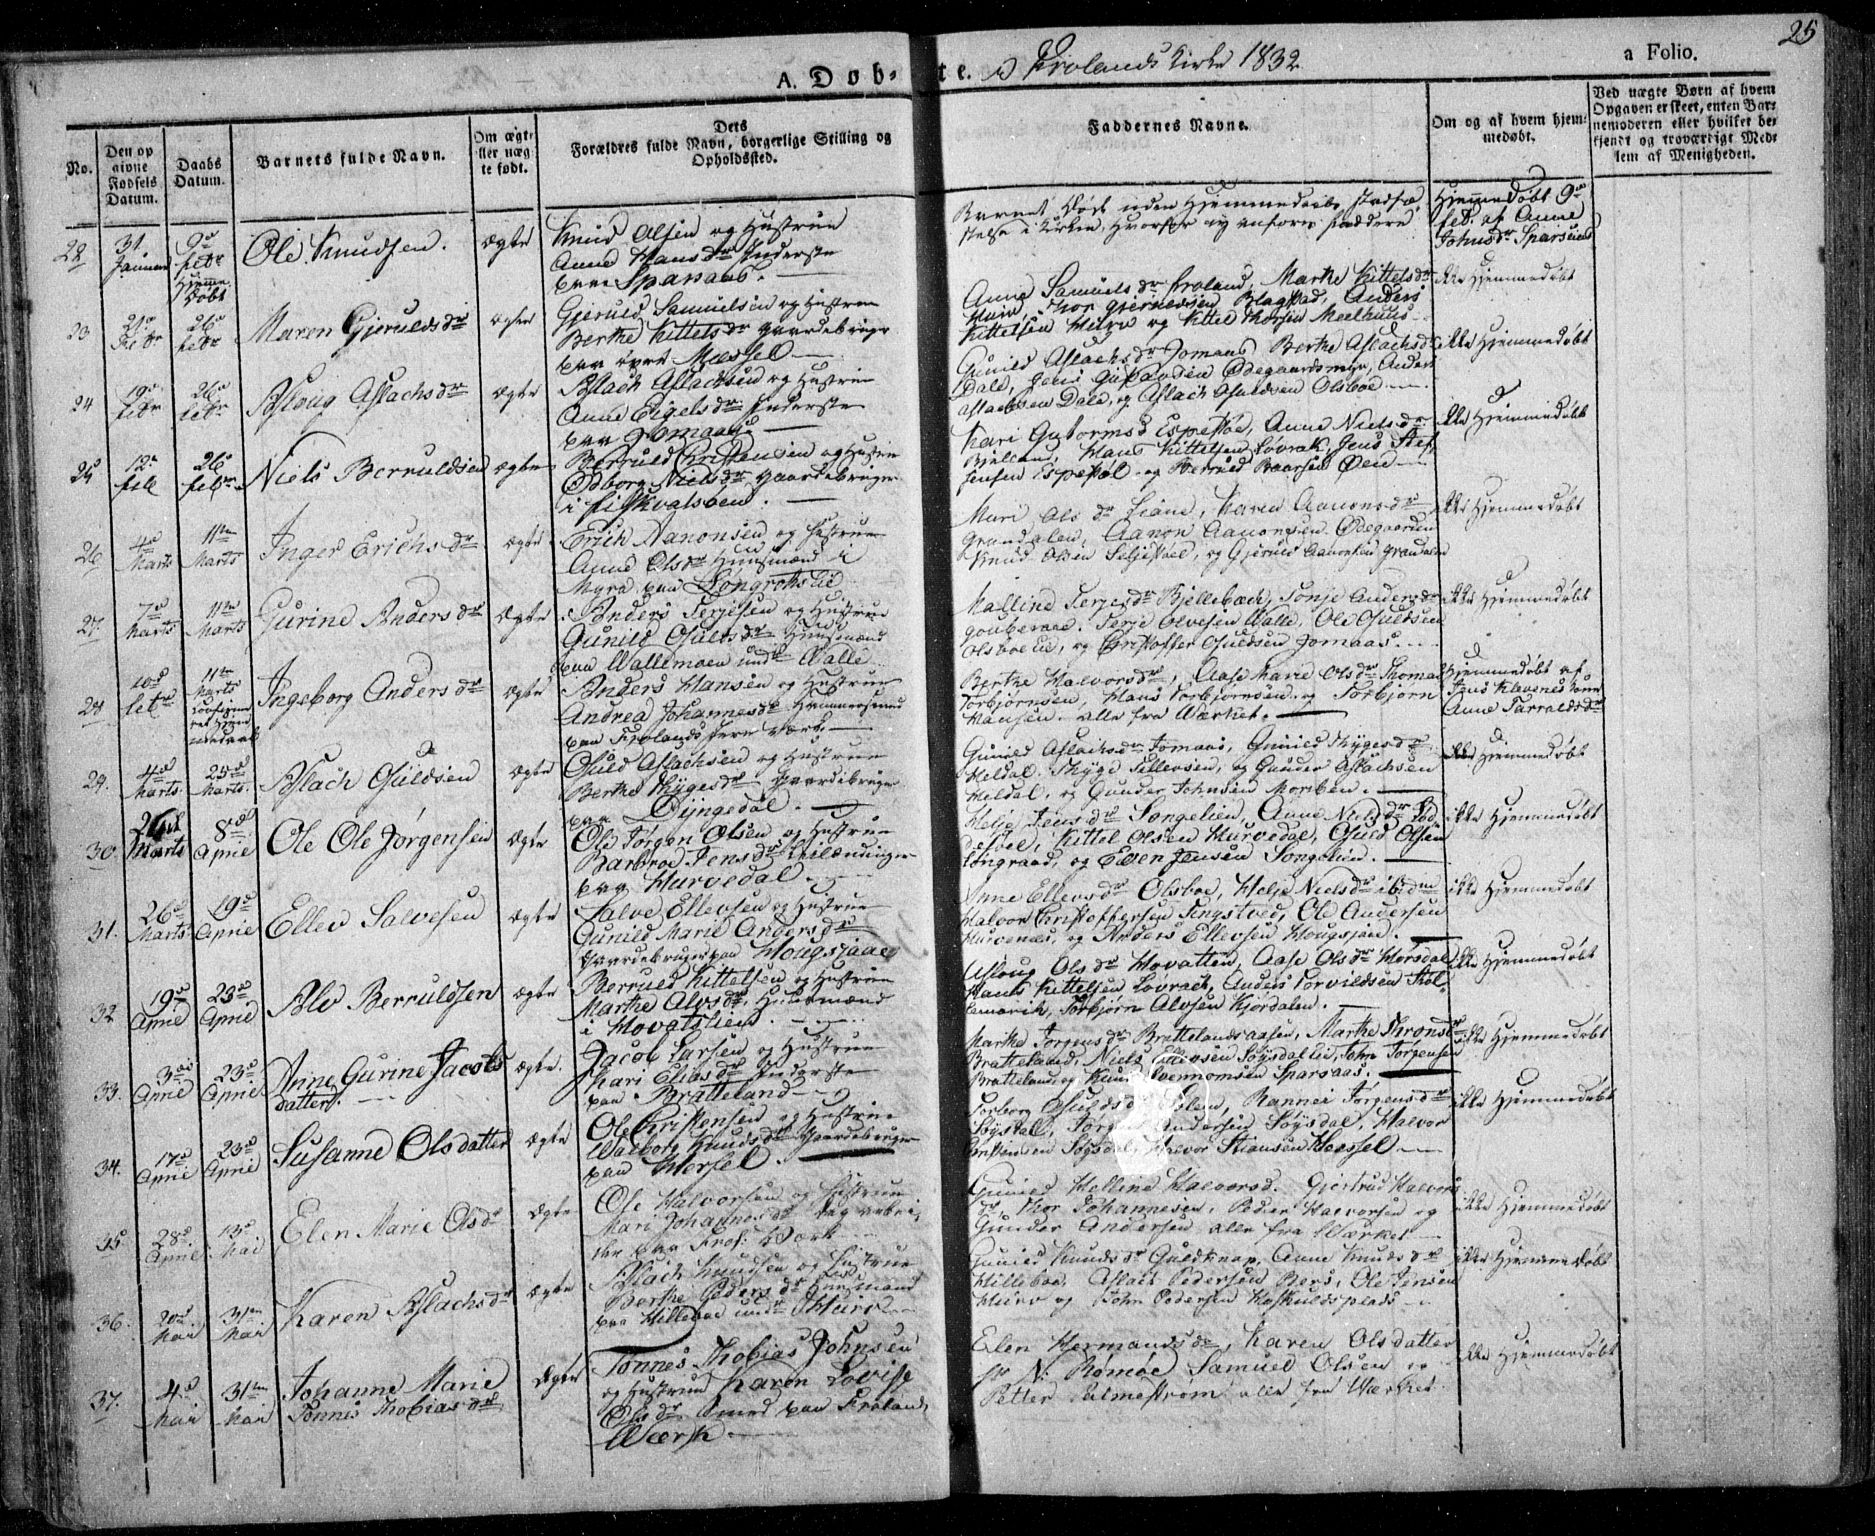 A. Døbte. i Frolands Kirke 1832
a Folio. 25
No.
Den op
givne
Fødsels
Datum.
Daabs
Datum.
Barnets fulde Navn.
Om ægte
eller uæg
te født.
Dets
Forældres fulde Navn, borgerlige Stilling og
Opholdssted.
Faddernes Navne.
Om og af hvem hjem-
medøbt.
Ved uægte Børn af hvem
Opgaven er skeet, enten Bar-
nemoderen eller hvilket be-
kjendt og troværdigt Med-
lem af Menigheden.
22
31.
Januar
9de
febr
Hjemme
Døbt
Ole Knudsen.
ægte
Knud Olsen og Hustrue
Anne Hansdr Inderste
paa Sparsaas.
Barnet Døde uden Hjemmedaabs stadfæ
stelse i Kirken, hvorfor ey anføres faddere
Hjemmedøbt 9de
feb. af Anne
Johnsdr Sparsaas
23
febr
26
febr
Maren Gjeruldsdr
ægte
Gjeruld Samuelsen og Hustrue
Berthe Kittelsdr Gaardebruger
paa øvre Mæssel
Anne Samuelsdr Froland, Marthe Kittelsdr
Thor Gjeruldsen Blagstad, Anders
Kittelsen Hurv og Kittel Thorsen Meelhuus
ikke Hjemmedøbt
24
19de
febr
26
febr
Asloug Aslachsdr
ægte
Aslach Aslachsen og Hustrue
Anne Eigelsdr Inderste
paa Jomaas.
Gunild Aslachsdr Jomaas, Berthe Aslachsdr
Dale, Jens Ødegaardsmyr, Anders
Aslachsen Dale, og Aslach Osuldsen Olsboe
ikke Hjemmedøbt
25
12te
feb
26
febr.
Niels Berruldsen
ægte
Berruld Kristensen og Hustrue
Edborg Nielsdr Gaardebruger
i Fiskvatsbøen.
Kari Gutormsd Espestøe, Anne Nielsdr
Bjelland, Hans Kittelsen Løvrak, Jens Stef
Jensen Espestøl og Berruld Baarsen Øen
ikke Hjemmedøbt
26
4de
Marts
11te
Marts
Inger Erichsdr
ægte
Erich Aanonsen og Hustrue
Anne Olsdr Huusmand i
Myra paa Longrothslie
Mari Olsdr Liane, Karen Aanonsdr
Grandalen, Aanon Aanonsen Ødegaarden
Knud Olsen Seljestøel, og Gjeruld Aanonsen Grandalen
ikke Hjemmedøbt
27
7de
Marts
11te
Marts
Gurine Andersdr
ægte
Anders Terjesen og Hustrue
Gunild Osuldsdr Huusmand
paa Vallemoen undr Valle
Mallene Terjesdr Bjellebæk, Tonje Andersdr
Terje Olvesen Valle, Ole Osuldsen
Olsboe lie, og Christoffer Osuldsen Jomaas.
ikke Hjemmedøbt
28
10de
febr
11te
Marts
Ingeborg Andersdr
ægte
Anders Hansen og Hustrue
Andrea Johannesdr Hammersmed
paa Frolands Jern Værk
Berthe Halvorsdr, Aase Marie Olsdr Thomas
Torbjørnsen, Hans Torbjørnsen og Torbjørn
Hansen. alle fra Værket.
Hjemmedøbt af
Jens Klavenes kone
Anne Tarraldsdr
29.
4de
Marts
25de
Marts.
Aslach Osuldsen
ægte
Osuld Aslachsen og Hustrue
Berthe Thygesdr Gaardebruger
paa Dyngedal.
Gunild Aslachsdr Jomaas, Gunild Thygesdr
Heldal. Thyge Tellevsen, og Gunder Aslachsen
Heldal, og Gunder Johnsen Moripen.
ikke Hjemmedøbt
30.
26de
Marts
8de
April
Ole Ole Jørgensen
ægte
Ole Jørgen Olsen og Hustrue
Barbroe Jensdr Leilændinger
paa Hurvedal.
Helje Jensdr Songelien, Anne Nielsdr Bøe
Kittel Olsen Hurvedal, Osuld Olsen
Longraad, og Even Jensen Songelien.
ikke Hjemmedøbt
31.
26de
Marts
19de
April
Ellev Salvesen
ægte
Salve Ellevsen og Hustrue
Gunild Marie Andersdr
Gaardebruger paa Hougsjaae
Anne Ellevsdr Olsboe, Helje Nielsdr ibdm
Halvor Christoffersen Tingstved, Ole Andersen
Hurvenæs, og Anders Ellevsen Hougsjaae.
ikke Hjemmedøbt
32
19de
April
23de
April
Alv Berruldsen
ægte
Berruld Kittelsen og Hustrue
Marthe Alvsdr Huusmand
i Hovatslien.
Asloug Olsdr Hovatten, Aase Olsdr Morsdal
Hans Kittelsen Løvrach, Anders Torvildsen Stol-
Torbjørn Alvsen Kjørdalen.
ikke Hjemmedøbt
33.
3die
April
23de
April
Anne Gurine Jacobs
datter.
ægte.
Jacob Larsen og Hustrue
Kari Eliasdr Inderste
paa Bratteland
Marthe Jørgensdr Brattelandsaasen, Marthe Thronsdr
Bratteland, Niels Ellevsen Søysdal lie, John Jørgensen
Bratteland og Knud Svennomsen Sparsaas.
ikke Hjemmedøbt
34.
17de
April
23de
April
Susanne Olsdatter
ægte
Ole Kristensen og Hustrue
Valborg Knudsdr Gaardebruger
paa Messel.
Torborg Osuldsdr Rannei Jørgensdr
Søysdal, Jørgen Andersen Søysdal, Halvor
Søysdal, Halvor Stiansen Messel
ikke Hjemmedøbt
35
28de
April
13de
Mai
Elen Marie Olsdr
ægte
Ole Halvorsen og Hustrue
Mari Johannesdr Dag arbei-
der paa Frol: Værk
Gunild Helline Halvorsd. Gjertrud Halvors
dr, Thor Johannesen, Peder Halvorsen og
Gunder Andersen alle fra Værket
ikke Hjemmedøbt
36.
20de
Mai
31te
Mai
Karen Aslachsdr
ægte
Aslach Knudsen og Hustrue
Berthe Pedersdr Huusmand
paa Hilleboe undr Hurv
Gunild Knudsdr Guldknap, Anne Knudsdr
Hilleboe, Aslach Pedersen Bers, Ole Jensen
Hurv og John Pedersen Kaskuldsplads
ikke Hjemmedøbt
37.
4de
Mai
31te
Mai
Johanne Marie
Tønnes Thobiasdr
ægte
Tønnes Thobias Johnsen
og Hustrue Karen Lovise
Olsdr Smed paa Froland
Værk.
Elen Hermandsdr, Karen Olsdatter
N: Romoe Samuel Olsen og
Petter Palmestrøm alle fra Værket.
ikke Hjemmedøbt